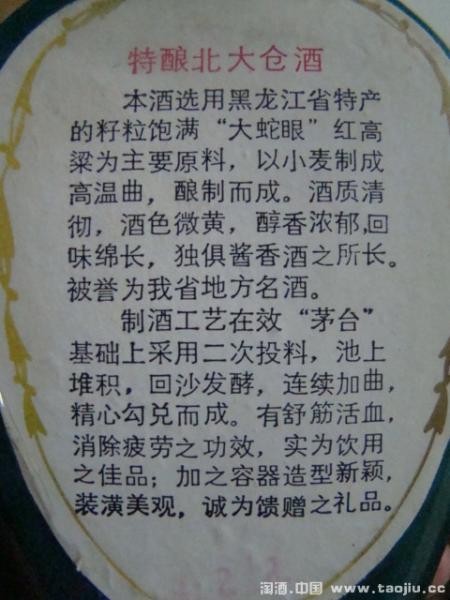 特酿北大仓酒
本酒选用黑龙江省特产
的籽粒饱满“大蛇眼”红高
粱为主要原料，以小麦制成
高温曲，酿制而成。酒质清
彻，酒色微黄，醇香浓郁,回
味绵长，独俱酱香酒之所长。
被誉为我省地方名酒。
制酒工艺在效“茅台”
基础上采用二次投料，池上
堆积，回沙发酵，连续加曲，
精心勾兑而成。有舒筋活血，
消除疲劳之功效，实为饮用
之佳品；加之容器造型新颖，
装潢美观，诚为馈赠之礼品。
淘酒.中国 www.taojiu.cc